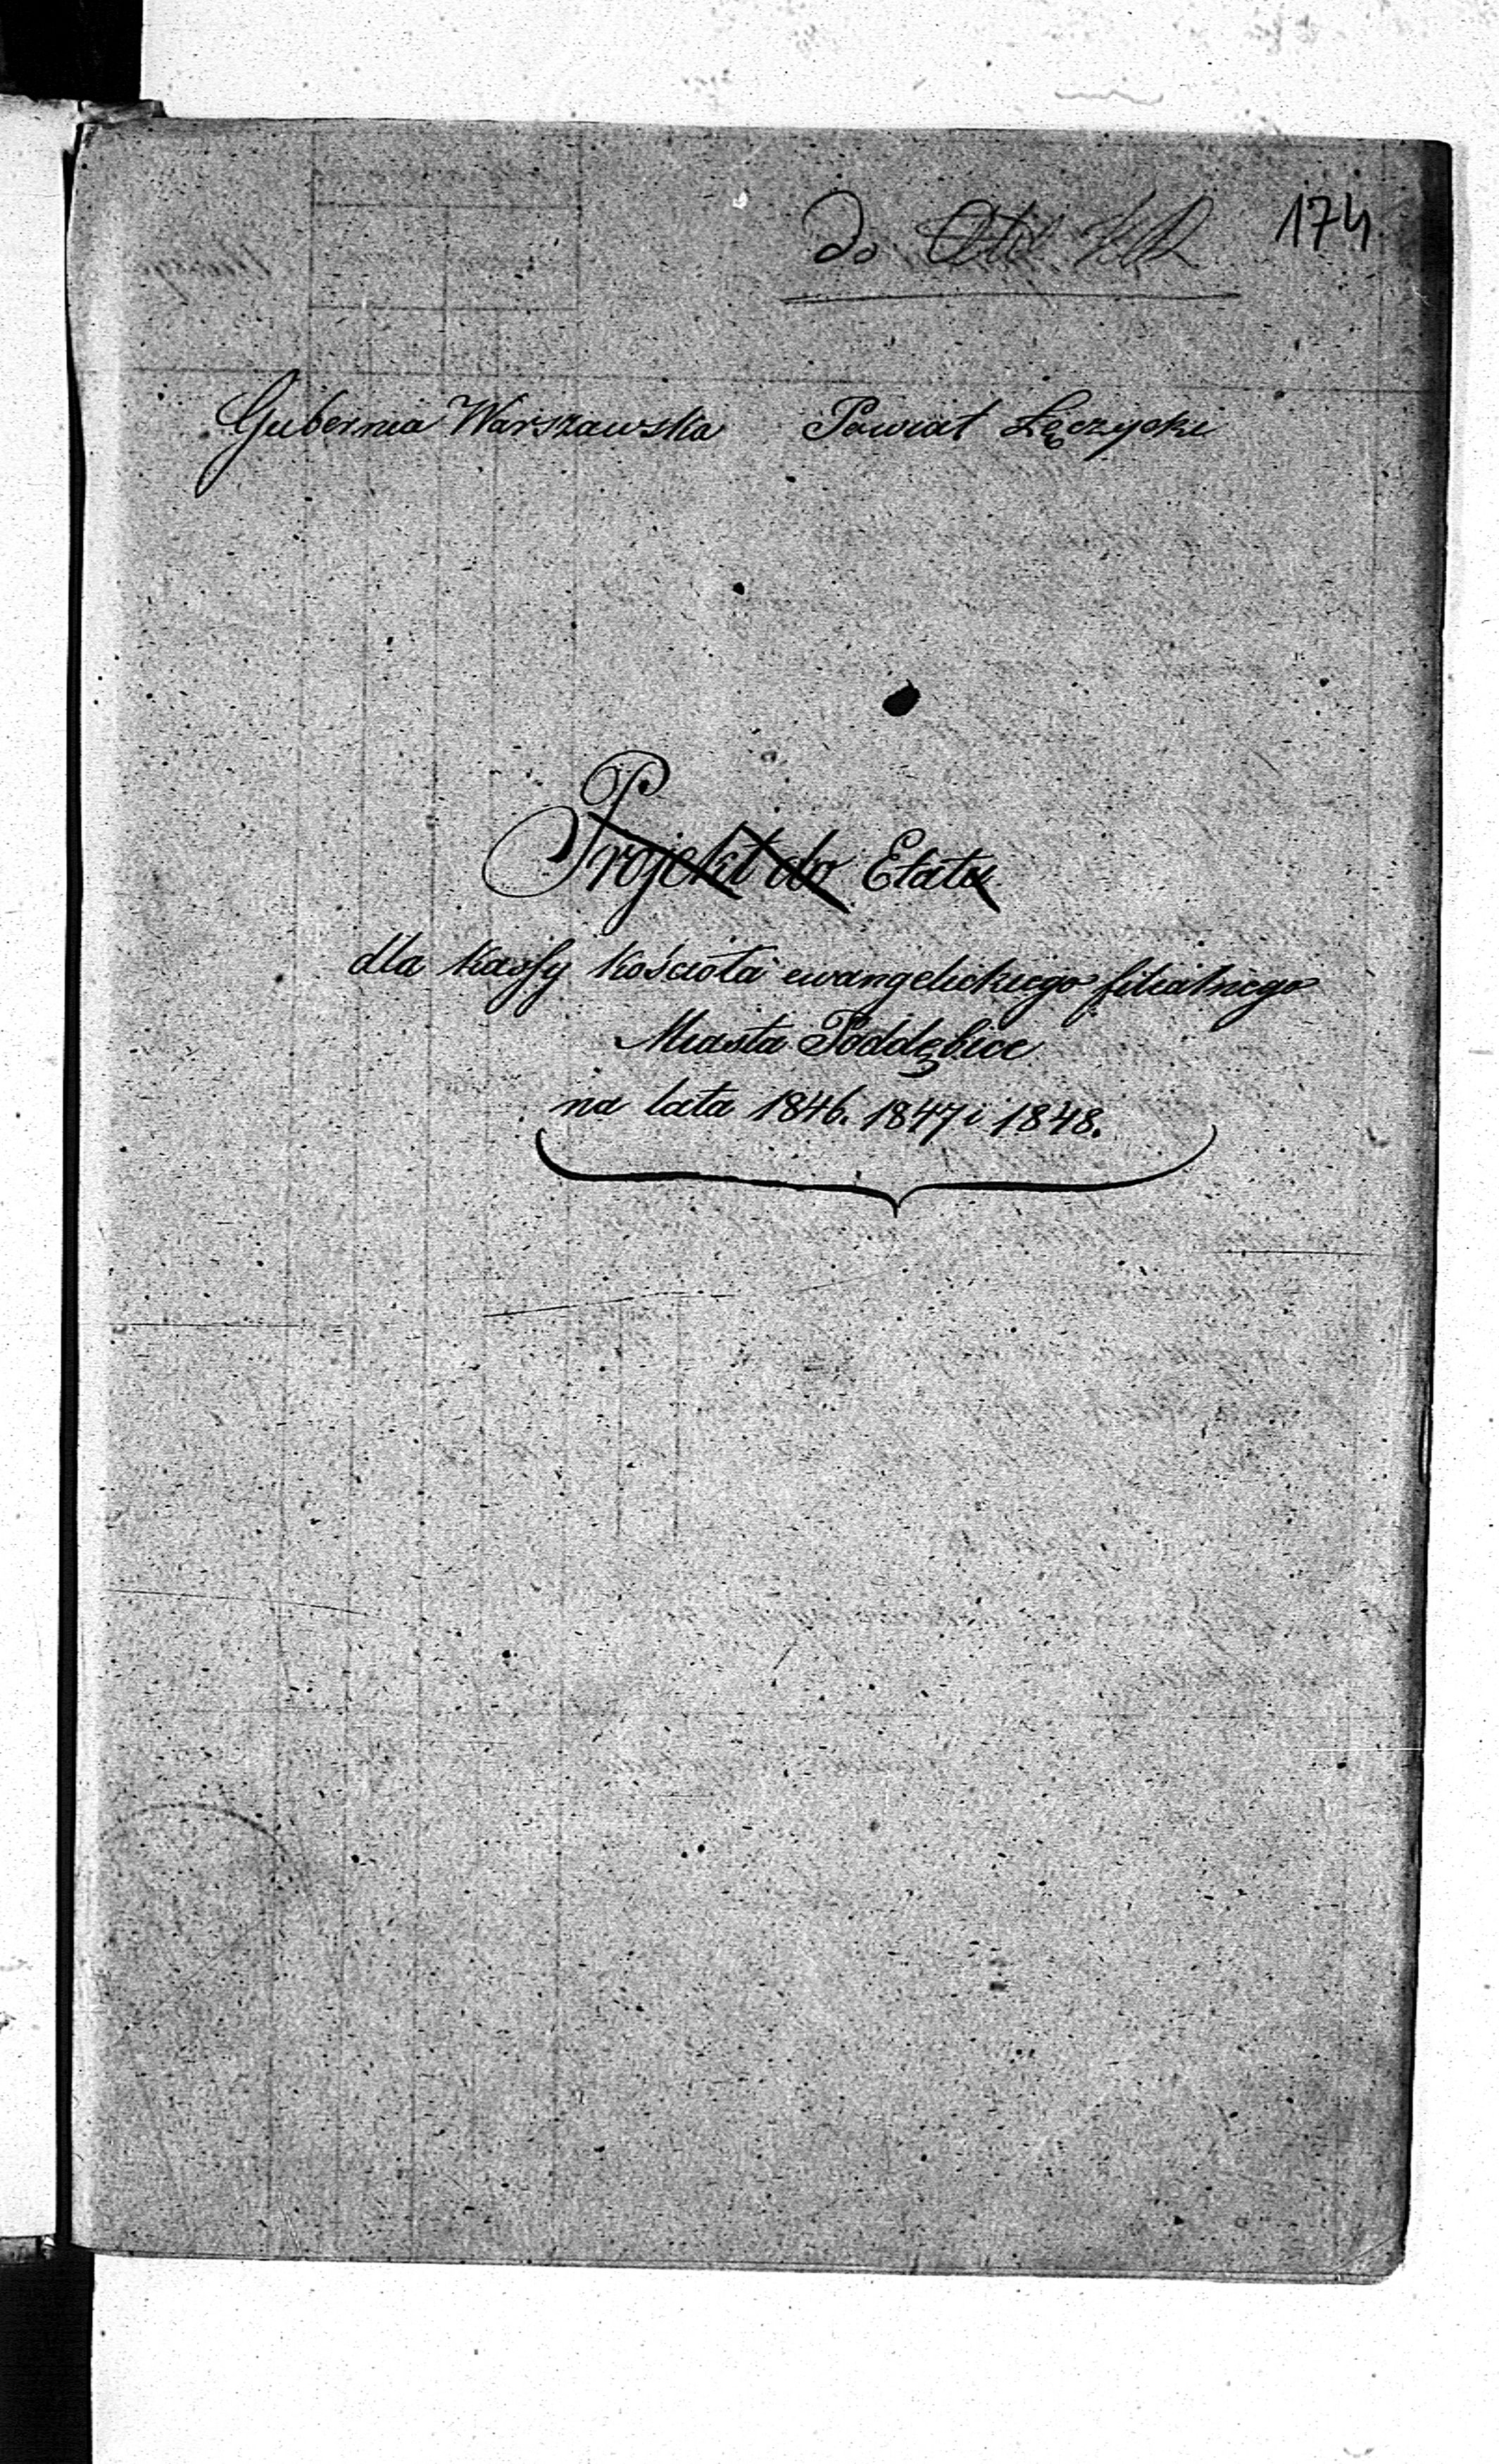 do 174
Gubernia Warszawska Powiat Łęczycki
Projekt do Etatu
dla Kassy Kościoła ewangelickiego filialnego
Miasta Poddębice
na lata 1846. 1847 i 1848.